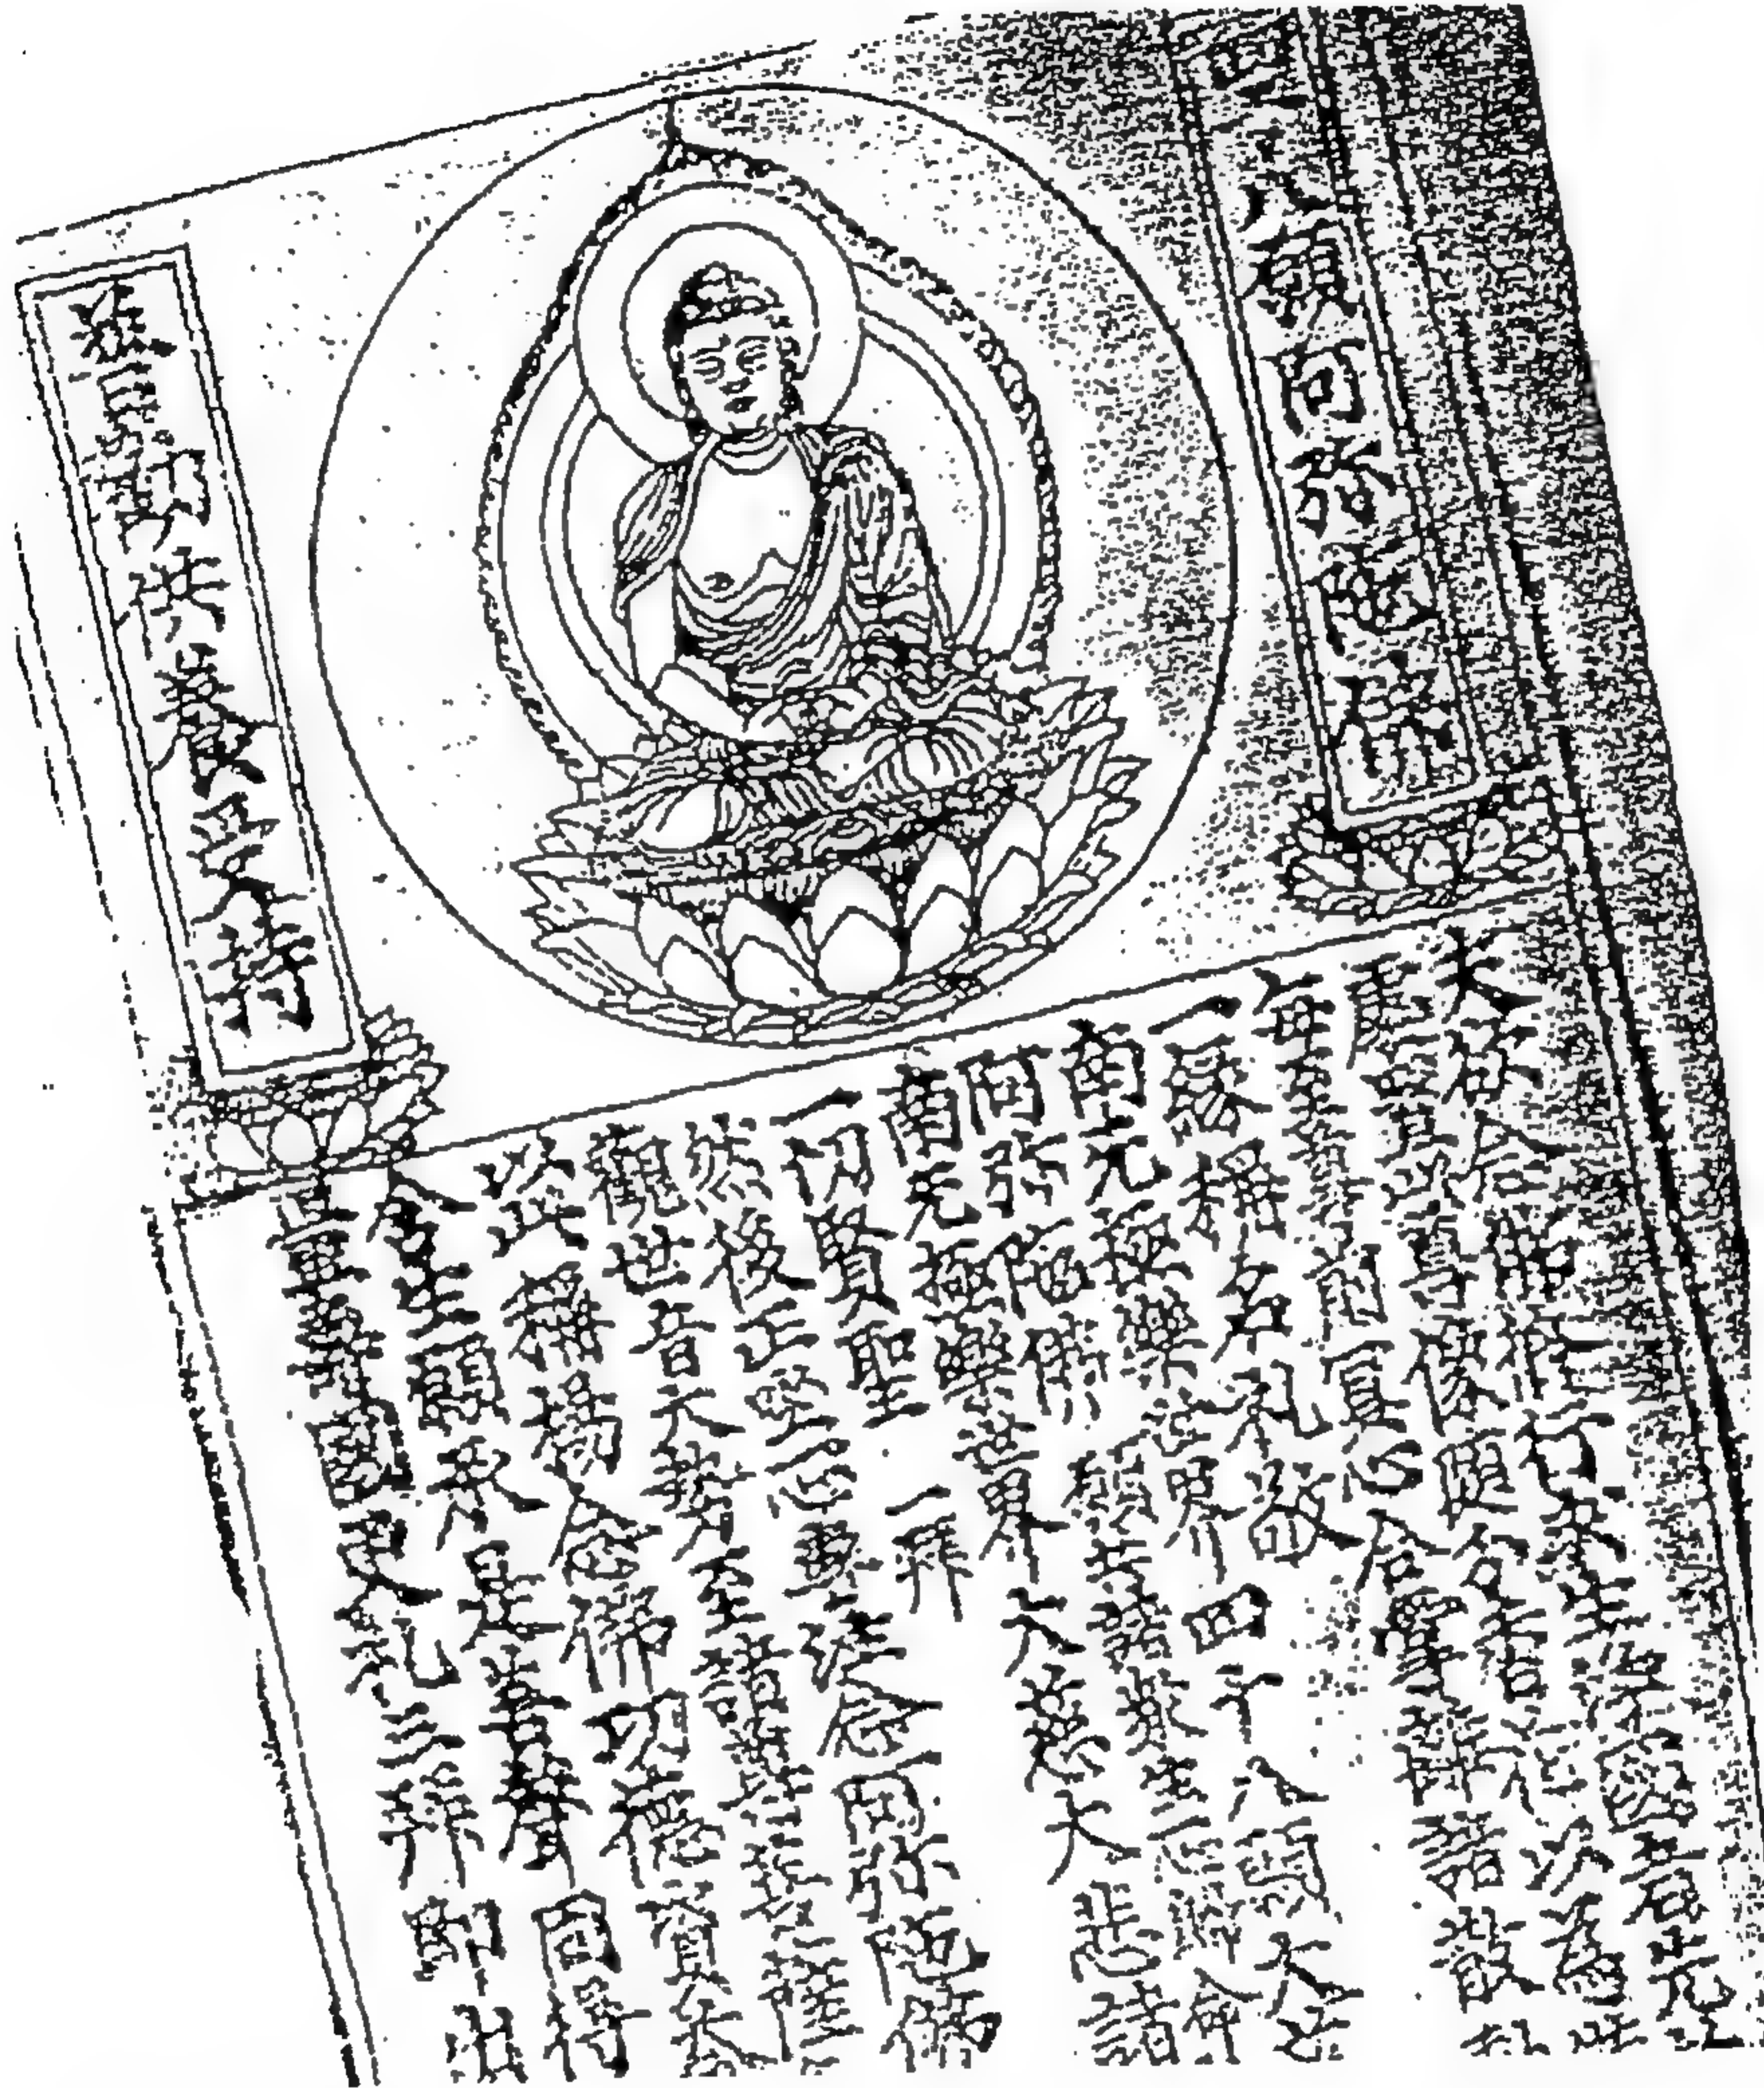 四十八願阿弥陁佛
普勸供養受持
夫欲念佛修行求生淨國者先
處置此尊像隨分香花以為供
每至尊前冥心合掌離諸散動
一緣稱名礼敬
南无極樂世界 四十八願大慈
阿弥陁佛 願共諸衆生一心歸命
南无極樂世界 大慈大悲諸
一切賢聖 一拜
然後正坐一心專注念阿弥陁佛
觀世音大勢至諸菩薩
以此稱揚念佛功德資
含生願承是善聲同得
國更礼三拜即出